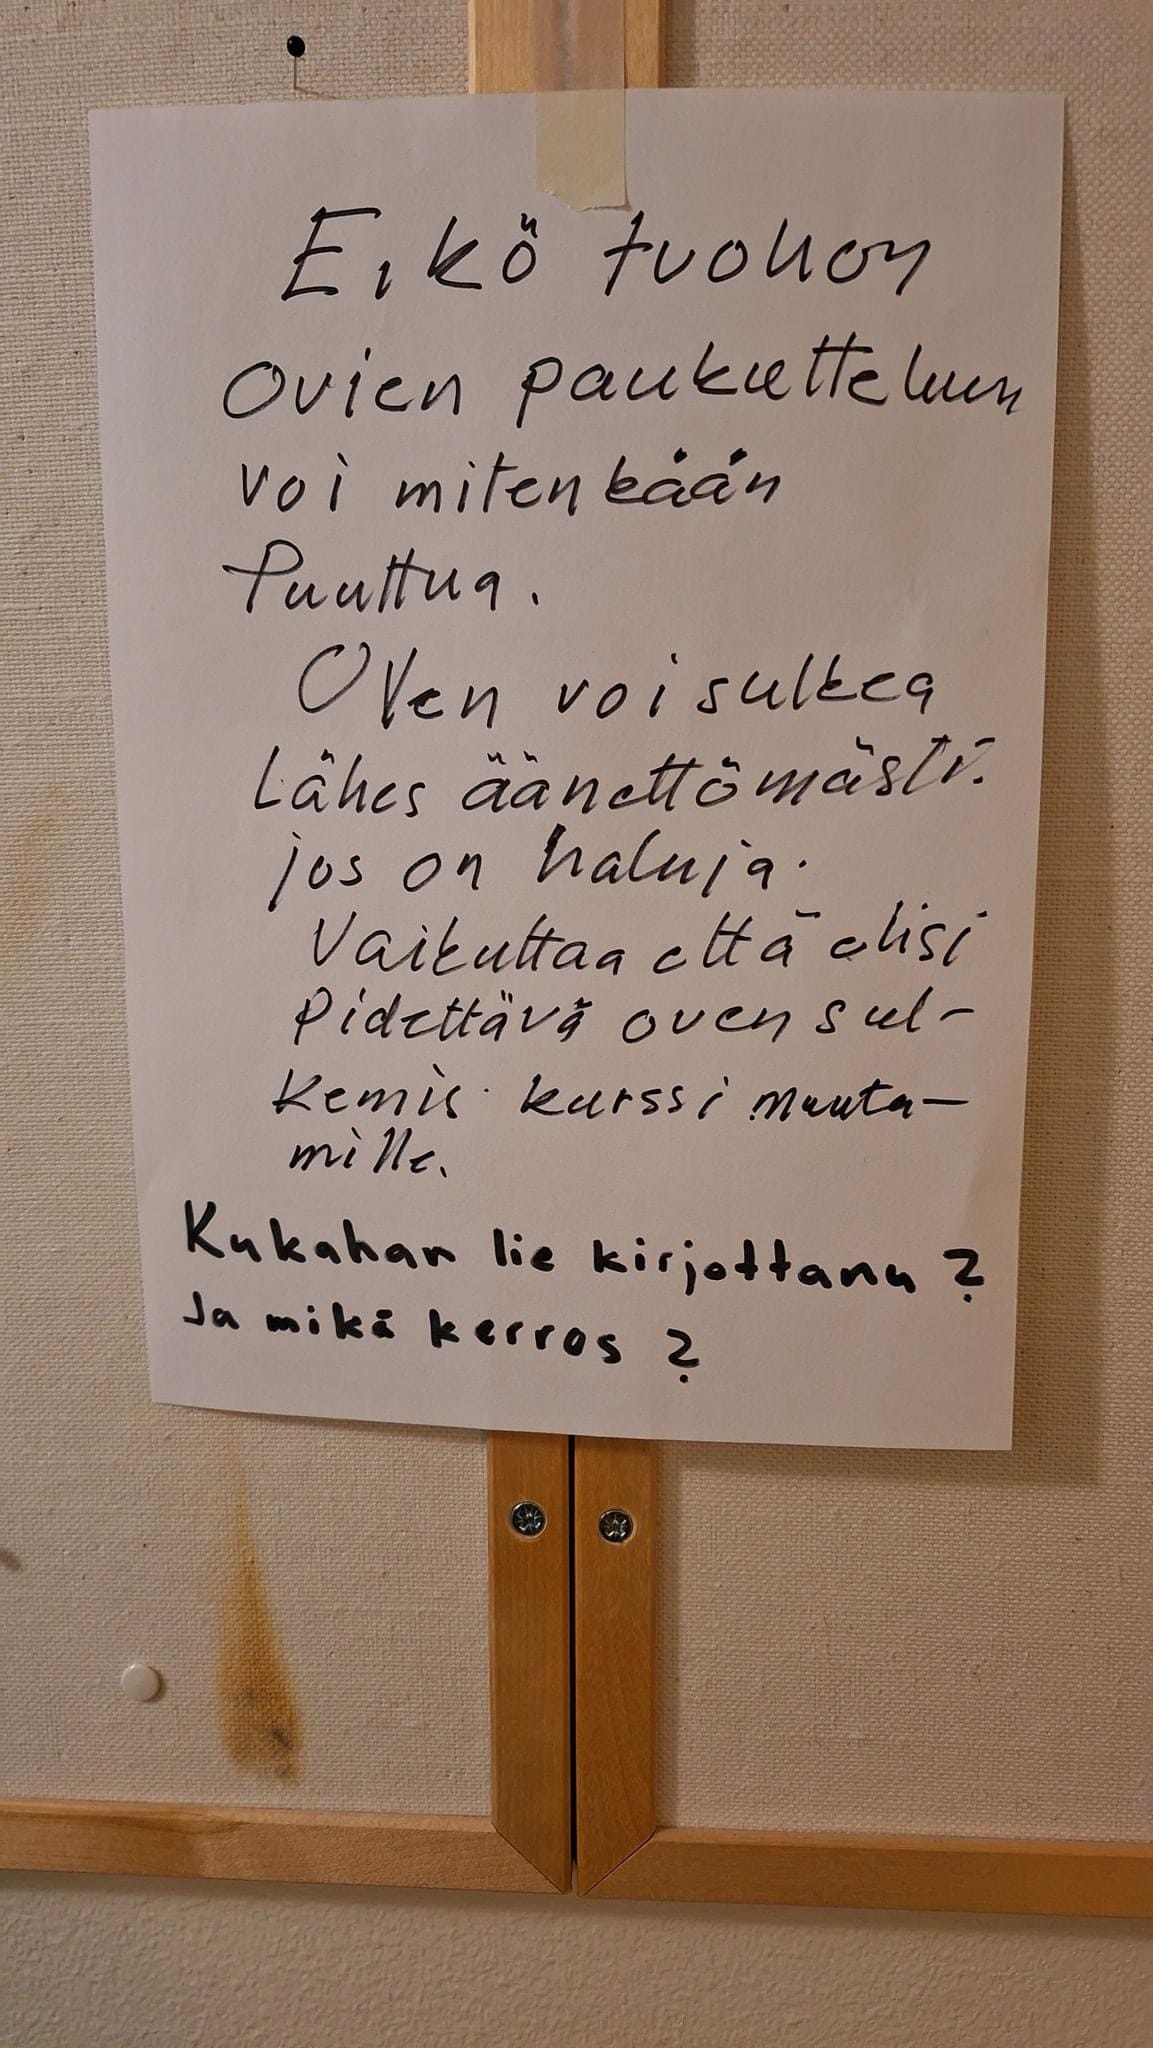 Eikö tuohon
ovien paukutteluun
voi mitenkään
Puuttua.
Oven voi sulkea
Lähes äänettömästi.
jos on haluja.
Vaikuttaa että olisi
Pidettävä oven sul-
kemis kurssi muuta-
mille.
Kukahan lie kirjottanu?
Ja mikä kerros?